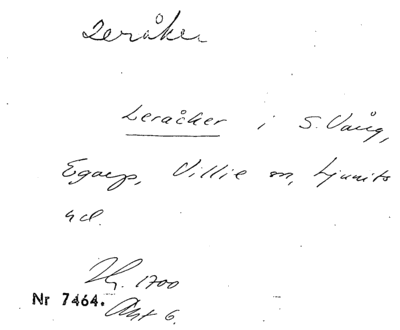 Leråker
Leråcker i S. Vång,
Egarp, Villie sn, Ljunits
hd.
Hg. 1700
Nr 7464. Akt 6.